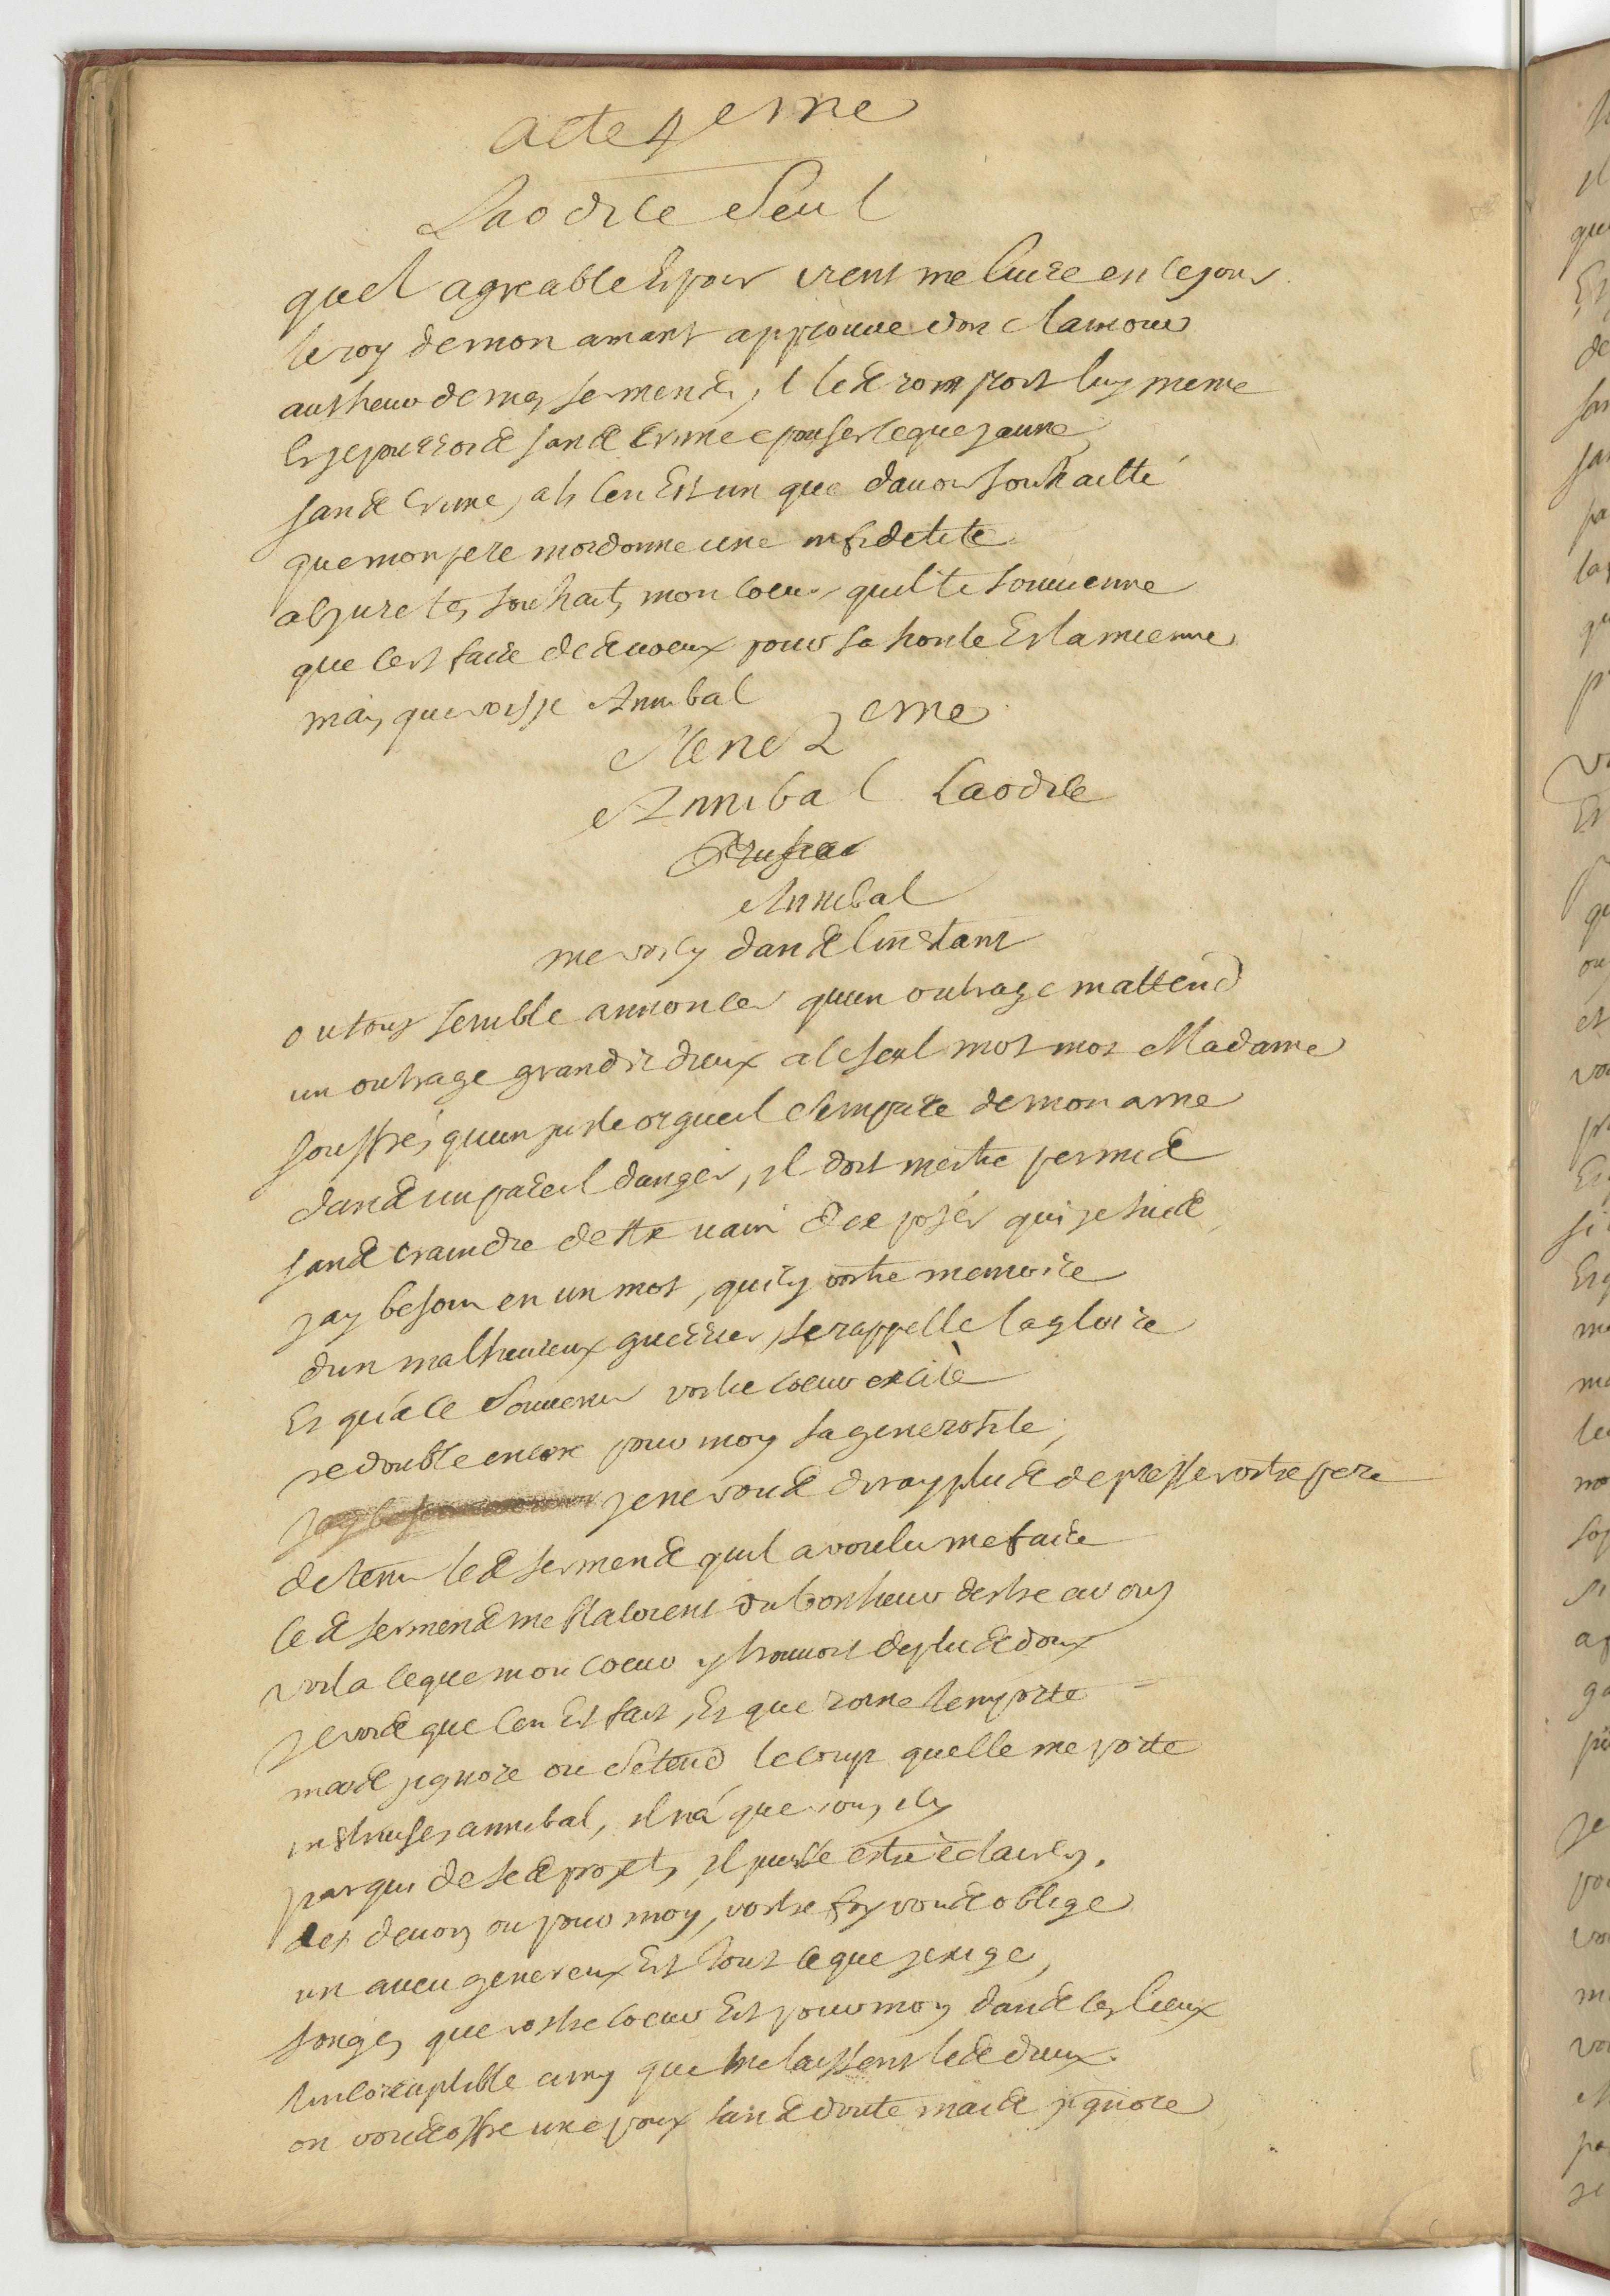 acte 4eme
Laodice Seul
quel agreable Espoir vient me luire en ce jour
le roy de mon amant approuve donc lamour
autheur de mes sermens, il les romproit luy meme
Et je pourrois sans crime epouser ce que jaime
sans crime, ah cen Est un que davoir souhaitté
que mon pere mordonne une infidelité
abjure tes souhaits mon coeur quil te souvienne
que cest faire des voeux pour sa honte Et la mienne
mais que vois je Annibal
scene 2eme
Annibal Laodice
Prusias
Annibal
me voicy dans linstant
ou tout semble annoncer quun outrage mattend
un outrage grands dieux a ce seul mot mot Madame
souffrés quun juste orgueil sempare de mon ame
dans un pareil danger, il doit mestre permis
sans craindre destre vain dexposér qui je suis
jay besoin en un mot, quicy vostre memoire
dun malheureux guerrier, se rappelle la gloire
Et qua ce souvenir vostre coeur excité
redouble encore pour moy sa generosité,
je ne vous diray plus de presser vostre pere
de tenir les sermens quil a voulu me faire
ces sermens me flatoient du bonheur destre a vous
voila ce que mon coeur y trouvoit de plus doux
je vois que cen Est fait, Et que rome lemporte
mais jignore ou setend le coup quelle me porte
instruises annibal, il na que vous icy
par qui de ses projets il puisse estre éclaircy.
des devoirs ou pour moy, vostre foy vous oblige
un aveu genereux Est tout ce que jexige,
songes que vostre coeur Est pour moy dans ces lieux
lincoruptible amy que me laissent les dieux.
on vous offre un epoux sans doute mais jignore